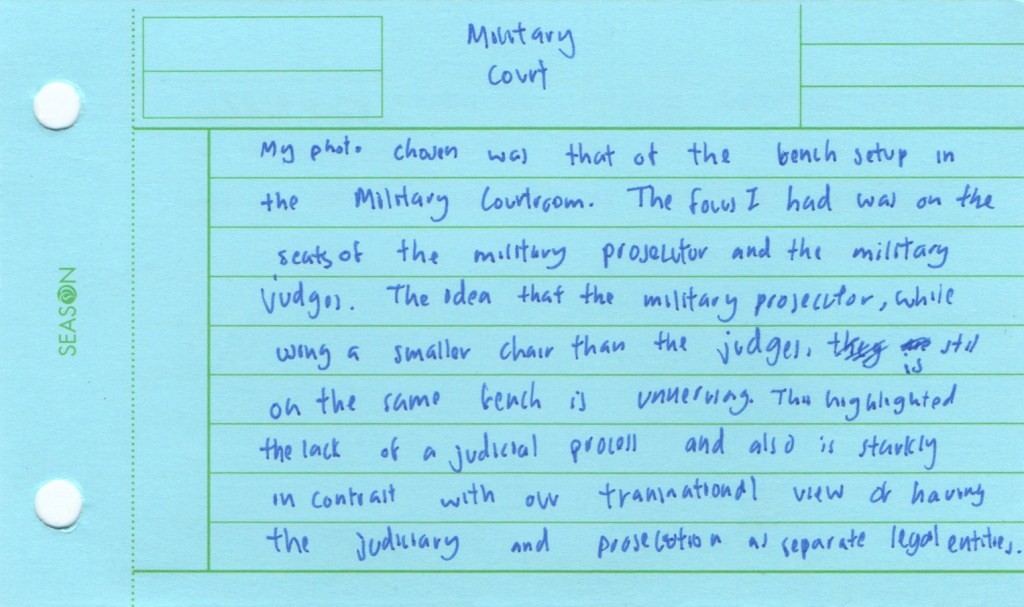 Military
Court
My photo chosen was that of the bench setup in
the Military Courtroom. The focus I had was on the
seats of the military prosecutor and the military
judges. The idea that the military prosecutor, while
using a smaller chair than the judges, is still
on the same bench is unnerving. This highlighted
the lack of a judicial process and also is starkly
in contrast with our transnational view of having
the judiciary and prosecution as separate legal entities.
SEASON